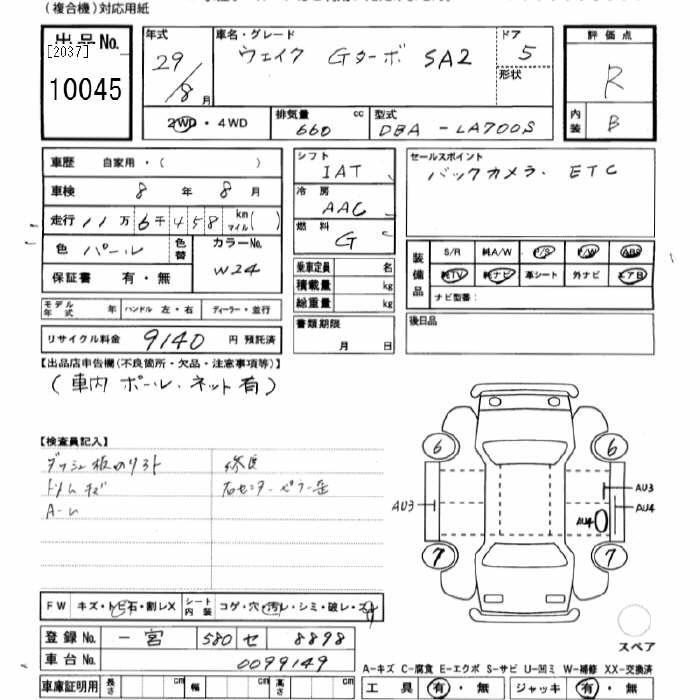 (複合機)対応用紙
出品No.
[2037]
10045
年式
29/8月
車名・グレード
ウェイク Gターボ SA2
ドア
5
形状
2WD・4WD
排気量 cc
660
型式
DBA-LA700S
評価点
R
内装
B
車歴 自家用・( )
車検 8年 8月
走行 11万 6千 458 km マイル( )
色 パール 色替
カラーNo.
W24
保証書 有・無
シフト
IAT
冷房
AAC
燃料
G
セールスポイント
バックカメラ. ETC
乗車定員 名
積載量 kg
総重量 kg
装備品
S/R 純A/W P/S P/W ABS
純TV 純ナビ 革シート 外ナビ エアB
ナビ型番:
モデル年式 年 ハンドル 左・右 ディーラー・並行
書類期限
月 日
後日品
リサイクル料金 9140 円 預託済
【出品店申告欄(不良箇所・欠品・注意事項等)】
(車内 ポール. ネット有)
【検査員記入】
A-U
6
6
AU3
AU3
AU4
AU4
7
7
FW キズ・トビ石・割レX シート内装 コゲ・穴・汚レ・シミ・破レ・スレ
登録No. 一宮 580 セ 8898
車台No. 0099149
スペア
A-キズ C-腐食 E-エクボ S-サビ U-凹ミ W-補修 XX-交換済
車庫証明用 長さ cm 幅 cm 高さ cm
工具 有・無 ジャッキ 有・無